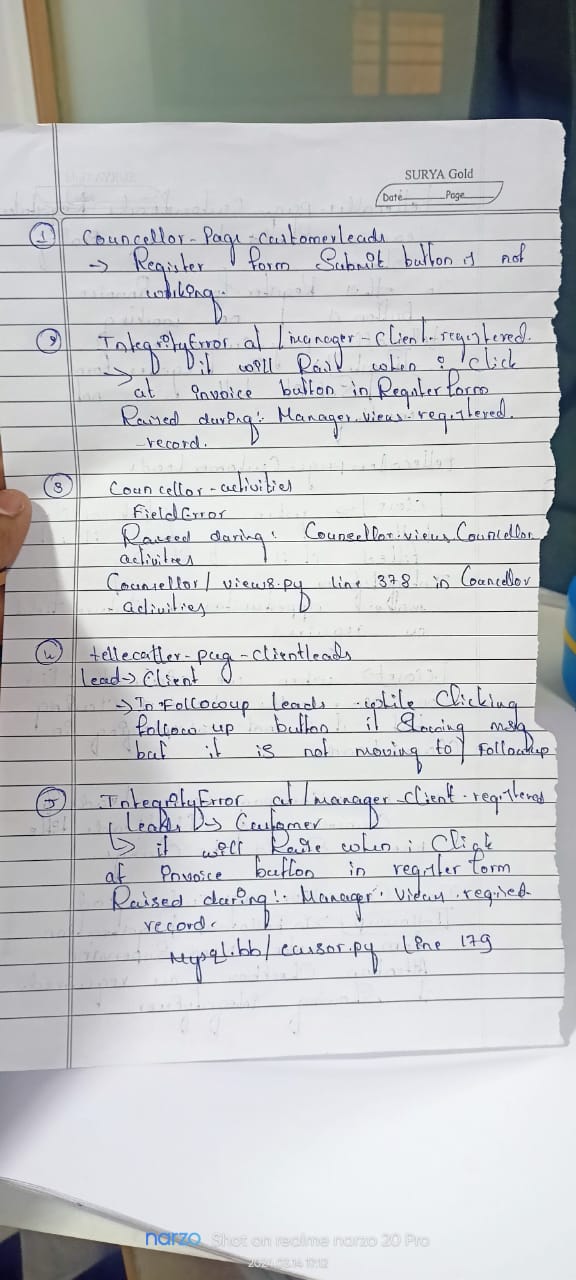 SURYA Gold
Date Page
1 Councellor-Page-customerleads
→ Register form Submit button is not
working.
2 IntegrityError at /manager-client-registered.
→ it will Raise when i click
at invoice button in Register form
Raised during: Manager.views.registered.
record.
3 Councellor-activities
FieldError
Raised during: Councellor.views.Councellor
activities
Councellor/views.py line 378 in Councellor
-activities
4 tellecaller-pag-clientleads
lead → Client
→ In Followup leads while Clicking
follow up button it showing msg
but it is not moving to followup
5 IntegrityError at /manager-client-registered
Leads → Customer
↳ it will Raise when i Click
at Invoice button in register form
Raised during: Manager.
record.
Mysql.bb/cursor.py line 179
narzo Shot on realme narzo 20 Pro
17:12